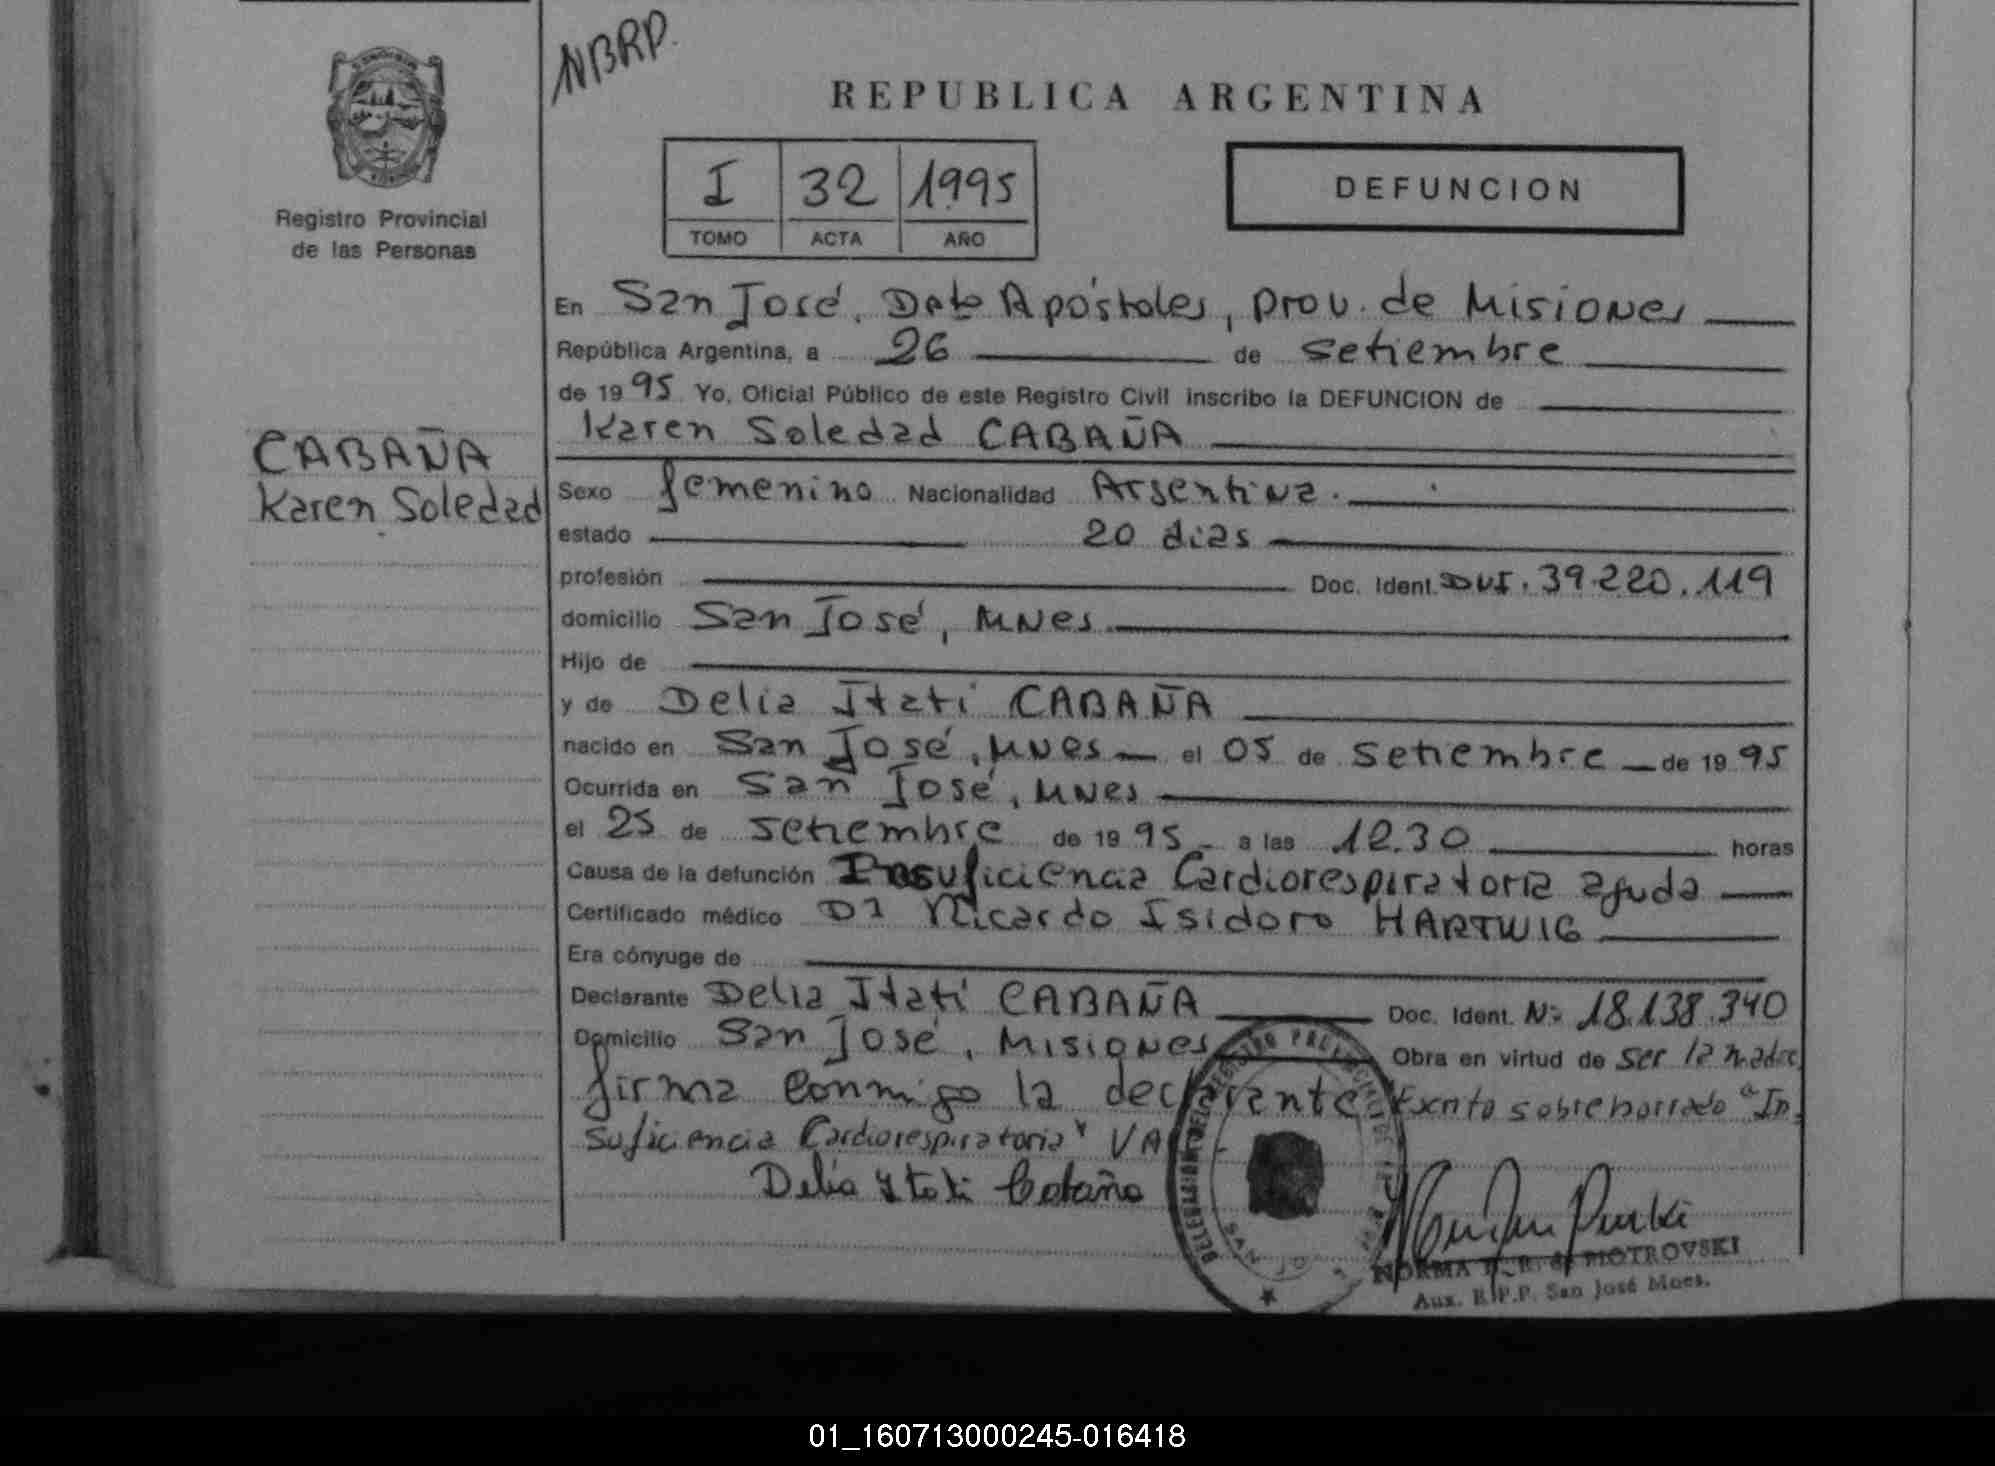 NBRP.
REPUBLICA ARGENTINA
I 32 1995
TOMO ACTA AÑO
DEFUNCION
Registro Provincial
de las Personas
CABAÑA
Karen Soledad
En San José, Dpto Apóstoles, prov. de Misiones
República Argentina, a 26 de setiembre
de 1995 Yo, Oficial Público de este Registro Civil inscribo la DEFUNCION de
Karen Soledad CABAÑA
Sexo femenino Nacionalidad Argentina.
estado 20 dias
profesión Doc. Ident. DNI. 39.220.119
domicilio San José, MNes
Hijo de
y de Delia Itatí CABAÑA
nacido en San José, MNes el 05 de setiembre de 1995
Ocurrida en San José, MNes
el 25 de setiembre de 1995 a las 12.30 horas
Causa de la defunción Insuficiencia Cardiorespiratoria aguda
Certificado médico Dr Ricardo Isidoro HARTWIG
Era cónyuge de
Declarante Delia Itatí CABAÑA Doc. Ident. Nº 18.138.340
Domicilio San José, Misiones Obra en virtud de ser la madre
firma conmigo la declarante Escrito sobre borrado "In
suficiencia Cardiorespiratoria" VA
Delia Itati Cabaña
NORMA B. R. de PIOTROVSKI
Aux. R.P.P. San José Mnes.
01_160713000245-016418